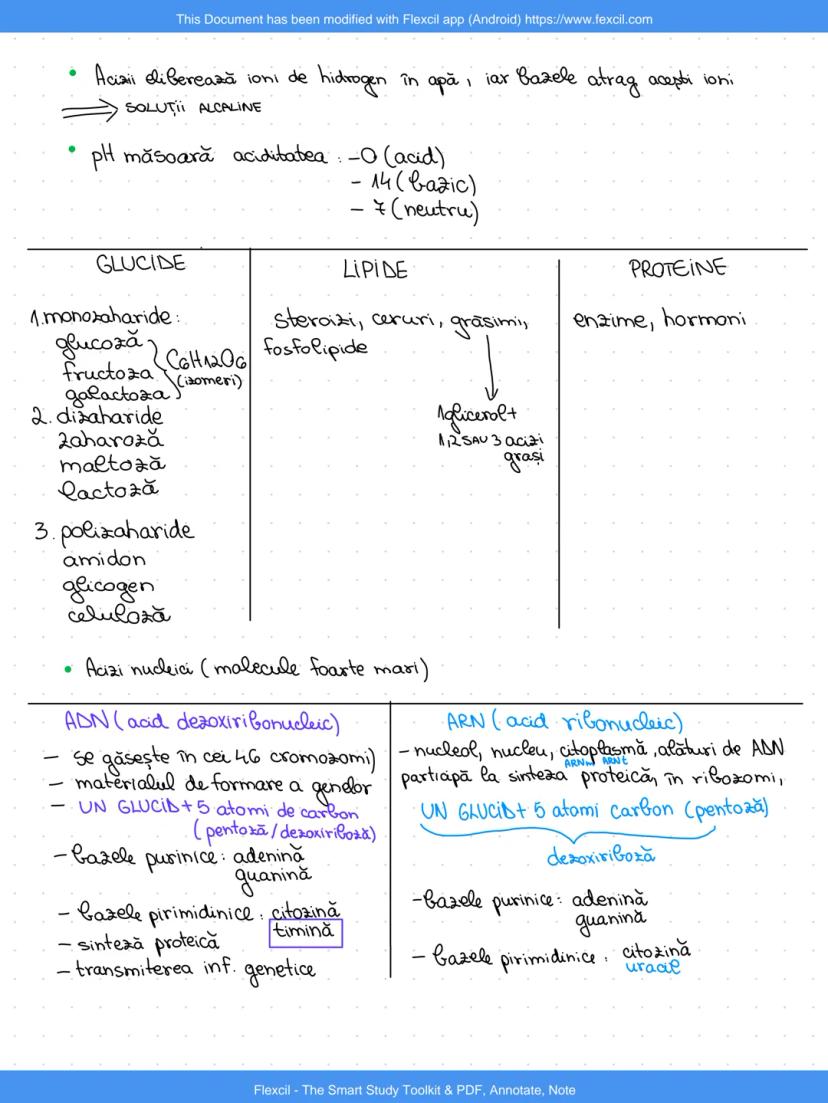 This Document has been modified with Flexcil app (Android) https://www.fexcil.com
• Acizii eliberează ioni de hidrogen în apă, iar bazele atrag acești ioni
⟹ SOLUȚII ALCALINE
• pH măsoară aciditatea : -0 (acid)
- 14 (bazic)
- 7 (neutru)
GLUCIDE
1.monozaharide:
glucoză
fructoza
galactoza
C6H12O6
(izomeri)
2. dizaharide
zaharoză
maltoză
lactoză
3. polizaharide
amidon
glicogen
celuloză
LIPIDE
steroizi, ceruri, grăsimi,
fosfolipide
1glicerol+
1,2 SAU 3 acizi
grași
PROTEINE
enzime, hormoni
• Acizi nucleici (molecule foarte mari)
ADN (acid dezoxiribonucleic)
- se găsește în cei 46 cromozomi)
- materialul de formare a genelor
- UN GLUCID+ 5 atomi de carbon
(pentoză/dezoxiriboză)
- bazele purinice: adenină
guanină
- bazele pirimidinice: citozină
timină
- sinteză proteică
- transmiterea inf. genetice
ARN (acid ribonucleic)
- nucleol, nucleu, citoplasmă, alături de ADN
ARNm ARNt
participă la sinteza proteică, în ribozomi,
UN GLUCID+ 5 atomi carbon (pentoză)
dezoxiriboză
-bazele purinice: adenină
guanină
- bazele pirimidinice: citozină
uracil
Flexcil - The Smart Study Toolkit & PDF, Annotate, Note